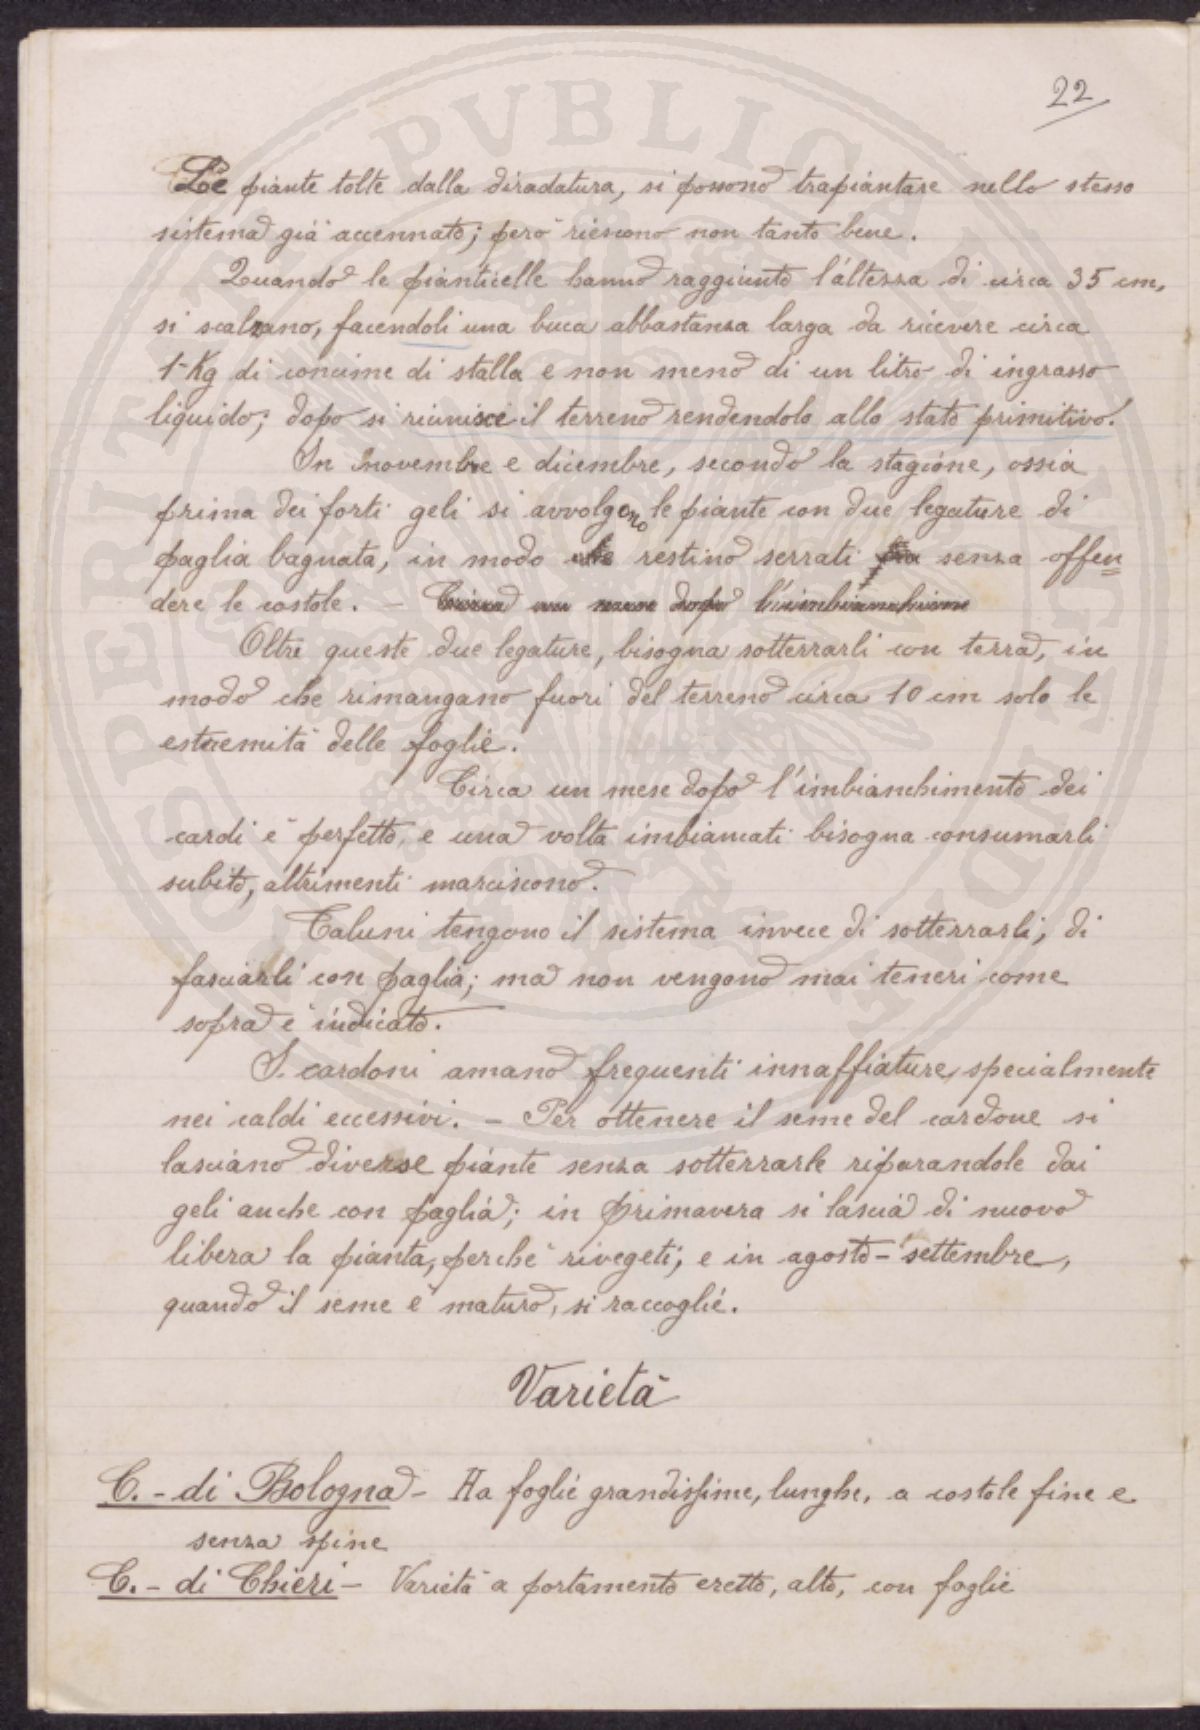 22
Le piante tolte dalla diradatura, si possono trapiantare nello stesso
sistema già accennato; però riescono non tanto bene.
Quando le pianticelle hanno raggiunto l'altezza di circa 35 cm,
si scalzano, facendoli una buca abbastanza larga da ricevere circa
1 Kg di concime di stalla e non meno di un litro di ingrasso
liquido; dopo si riunisce il terreno rendendolo allo stato primitivo.
In novembre e dicembre, secondo la stagione, ossia
prima dei forti geli si avvolgono le piante con due legature di
paglia bagnata, in modo che restino serrati senza offen
dere le costole. - Circa un mese dopo l'imbianchime
Oltre queste due legature, bisogna sotterrarli con terra, in
modo che rimangano fuori del terreno circa 10 cm solo le
estremità delle foglie.
Circa un mese dopo l'imbianchimento dei
cardi è perfetto, e una volta imbiancati bisogna consumarli
subito, altrimenti marciscono.
Taluni tengono il sistema invece di sotterrarli, di
fasciarli con paglia; ma non vengono mai teneri come
sopra è indicato.
I cardoni amano frequenti innaffiature, specialmente
nei caldi eccessivi. - Per ottenere il seme del cardone si
lasciano diverse piante senza sotterrarle riparandole dai
geli anche con paglia; in primavera si lascia di nuovo
libera la pianta, perchè rivegeti; e in agosto - settembre,
quando il seme è maturo, si raccoglie.
Varietà
C. - di Bologna - Ha foglie grandissime, lunghe, a costole fine e
senza spine
C. - di Chieri - Varietà a portamento eretto, alto, con foglie
PVBLICAE
SPERITATI